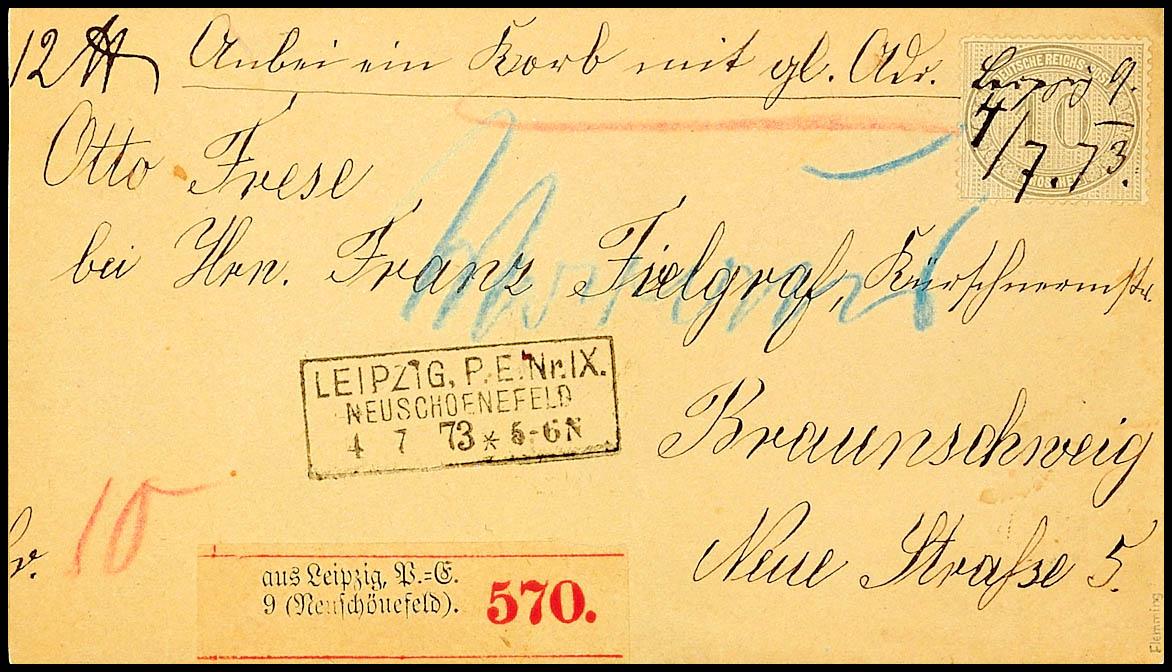 12 ℔ Anbei ein Korb mit gl. Adr.
DEUTSCHE REICHS-POST
10
Leipzig 9.
4/7. 73.
Otto Frese
bei Hrn. Franz Fielgraf, Kürschnermstr.
LEIPZIG, P.E.Nr.IX.
NEUSCHOENEFELD
4 7 73 * 5-6 N
Braunschweig
Neue Straße 5
10
aus Leipzig, P.-E.
9 (Neuschönefeld).
570.
Flemming